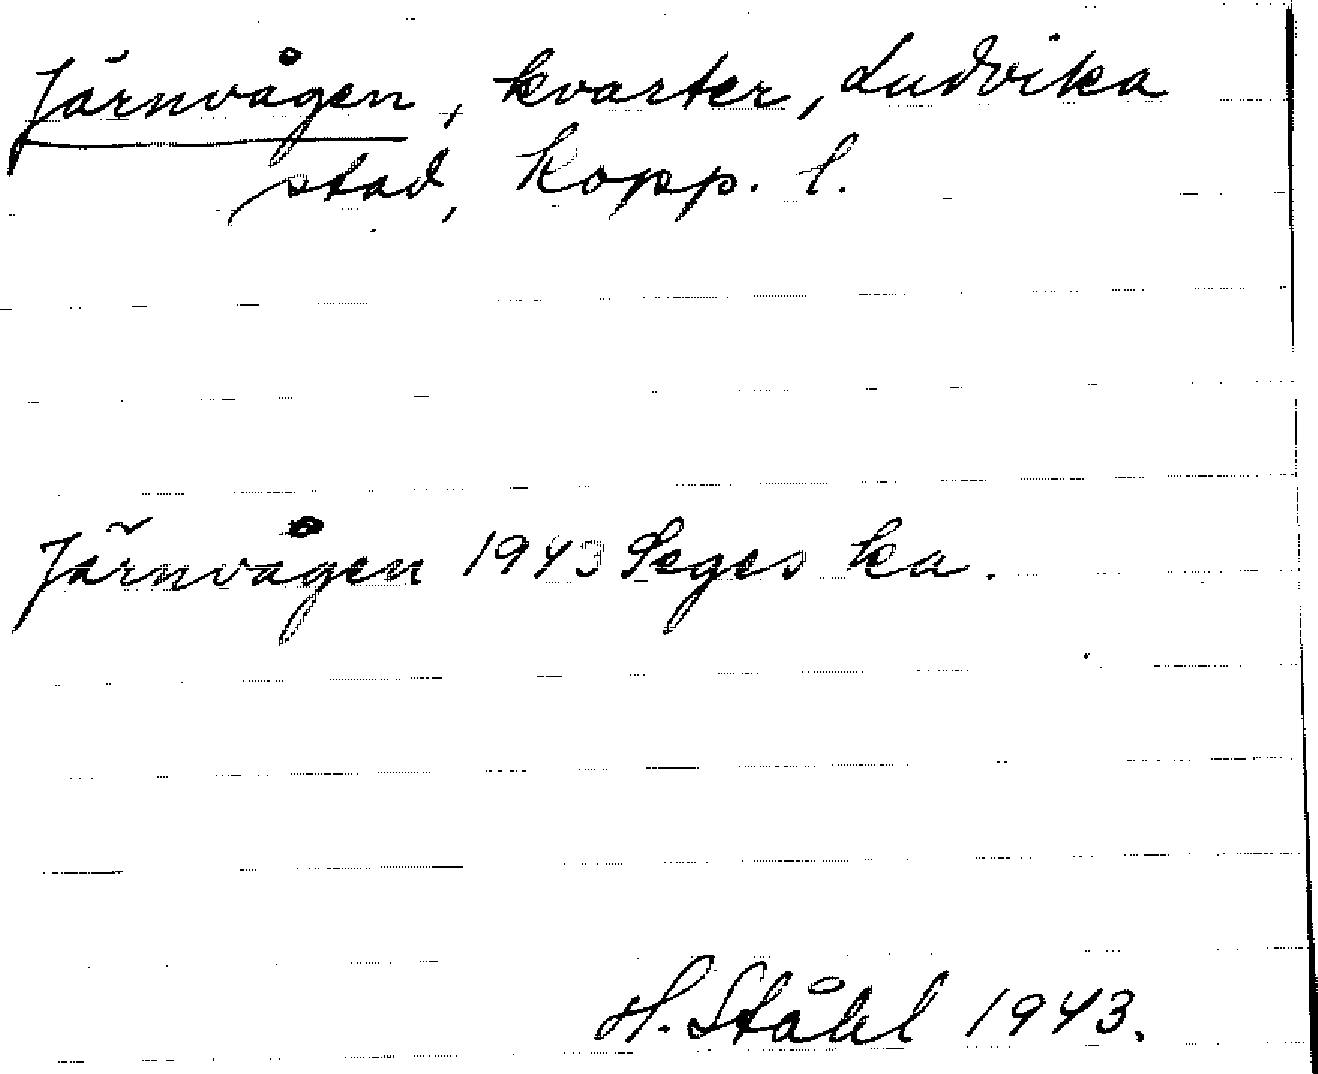 Järnvågen, kvarter, Ludvika
stad, Kopp. l.
Järnvågen 1943 Seges ka.
H. Ståhl 1943.